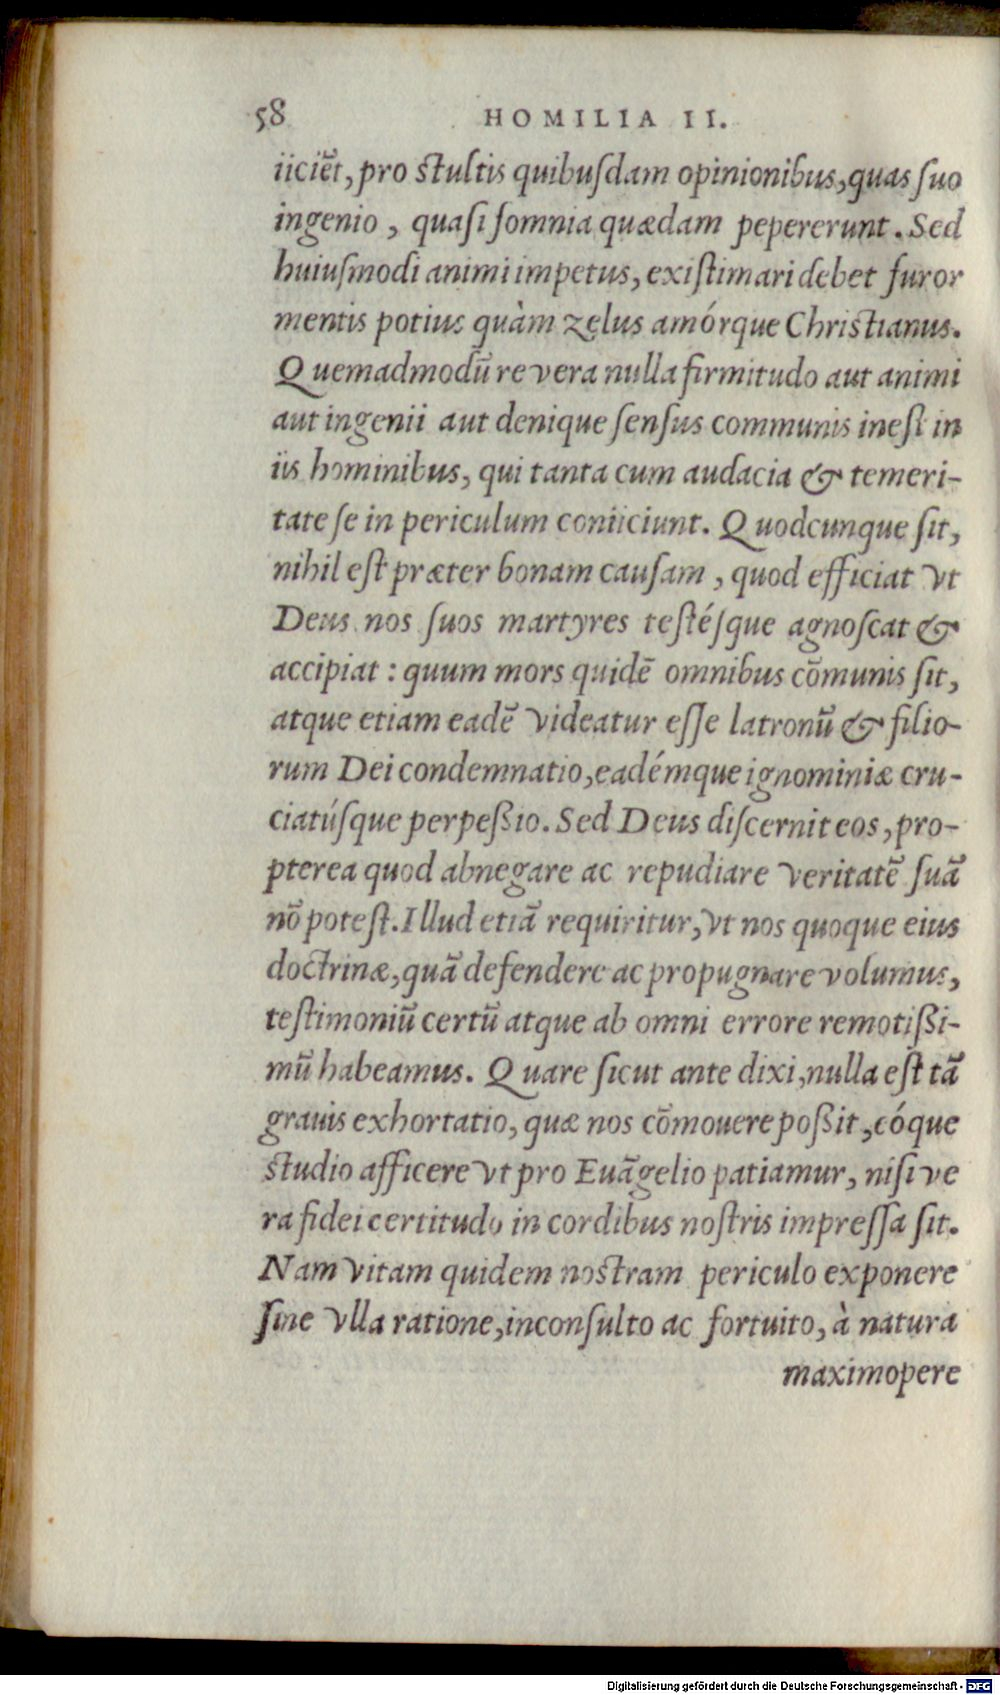 58 HOMILIA II.
iiciēt, pro stultis quibusdam opinionibus, quas suo
ingenio, quasi somnia quædam pepererunt. Sed
huiusmodi animi impetus, existimari debet furor
mentis potius quàm zelus amórque Christianus.
Quemadmodū re vera nulla firmitudo aut animi
aut ingenii aut denique sensus communis inest in
iis hominibus, qui tanta cum audacia & temeri-
tate se in periculum coniiciunt. Quodcunque sit,
nihil est præter bonam causam, quod efficiat vt
Deus nos suos martyres testésque agnoscat &
accipiat: quum mors quidē omnibus cōmunis sit,
atque etiam eadē videatur esse latronū & filio-
rum Dei condemnatio, eadémque ignominiæ cru-
ciatúsque perpeßio. Sed Deus discernit eos, pro-
pterea quod abnegare ac repudiare veritatē suā
nō potest. Illud etiā requiritur, vt nos quoque eius
doctrinæ, quā defendere ac propugnare volumus,
testimoniū certū atque ab omni errore remotißi-
mū habeamus. Quare sicut ante dixi, nulla est tā
grauis exhortatio, quæ nos cōmouere poßit, eóque
studio afficere vt pro Euāgelio patiamur, nisi ve
ra fidei certitudo in cordibus nostris impressa sit.
Nam vitam quidem nostram periculo exponere
sine vlla ratione, inconsulto ac fortuito, à natura
maximopere
Digitalisierung gefördert durch die Deutsche Forschungsgemeinschaft - DFG